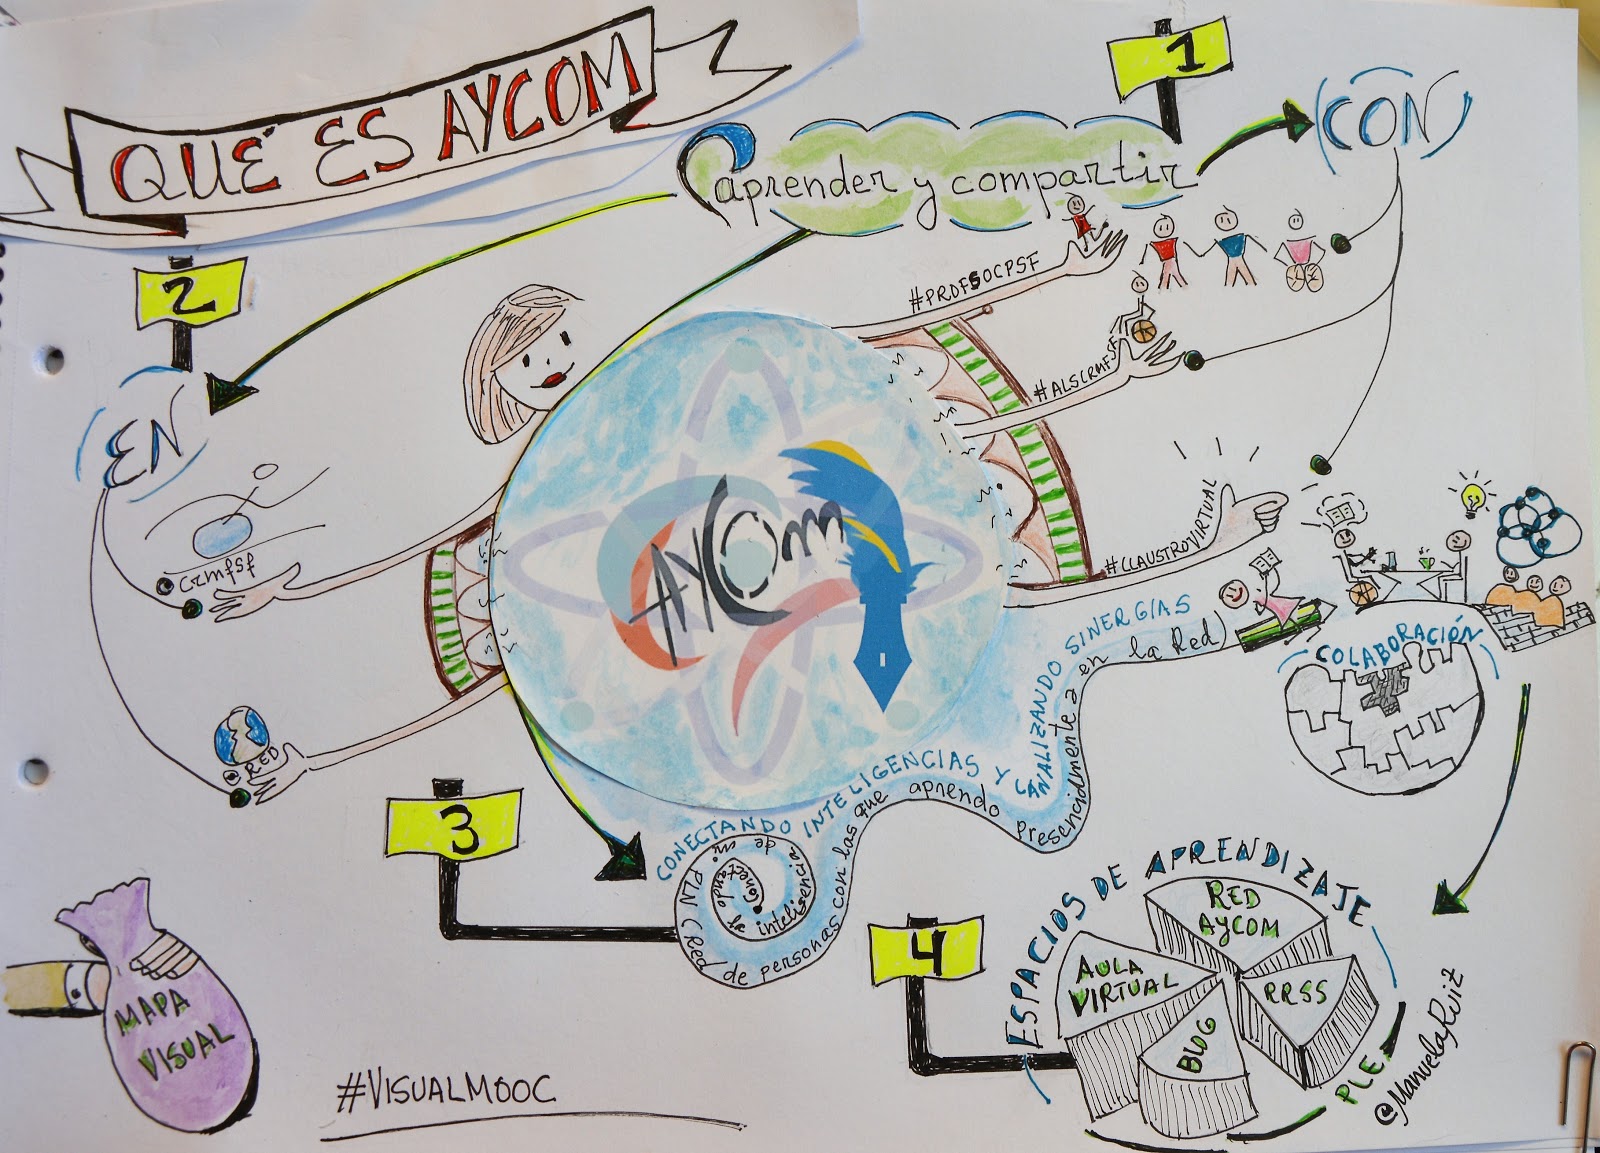 QUÉ ES AYCOM
1
aprender y compartir
CON
#PROFSOCPSF
#ALSCRMFSF
#CLAUSTROVIRTUAL
2
EN
crmfsf
RED
AYCom
COLABORACIÓN
3
CONECTANDO INTELIGENCIAS Y CANALIZANDO SINERGIAS
Conectando la inteligencia de mi PLN (Red de personas con las que aprendo presencialmente o en la Red)
4
ESPACIOS DE APRENDIZAJE
RED
AYCOM
AULA
VIRTUAL
RRSS
BLOG
PLE
@ManuelaRuiz
MAPA
VISUAL
#VISUALMOOC